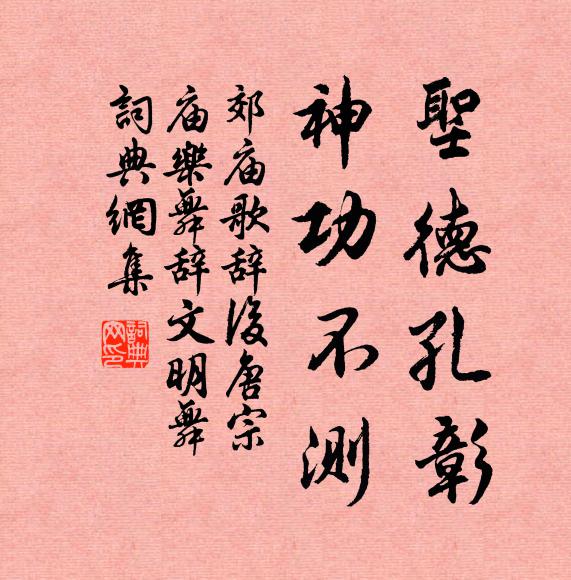 聖德孔彰
神功不測
郊庙歌辞後唐宗
庙樂舞辞文明舞
詞典網集
詞典网印